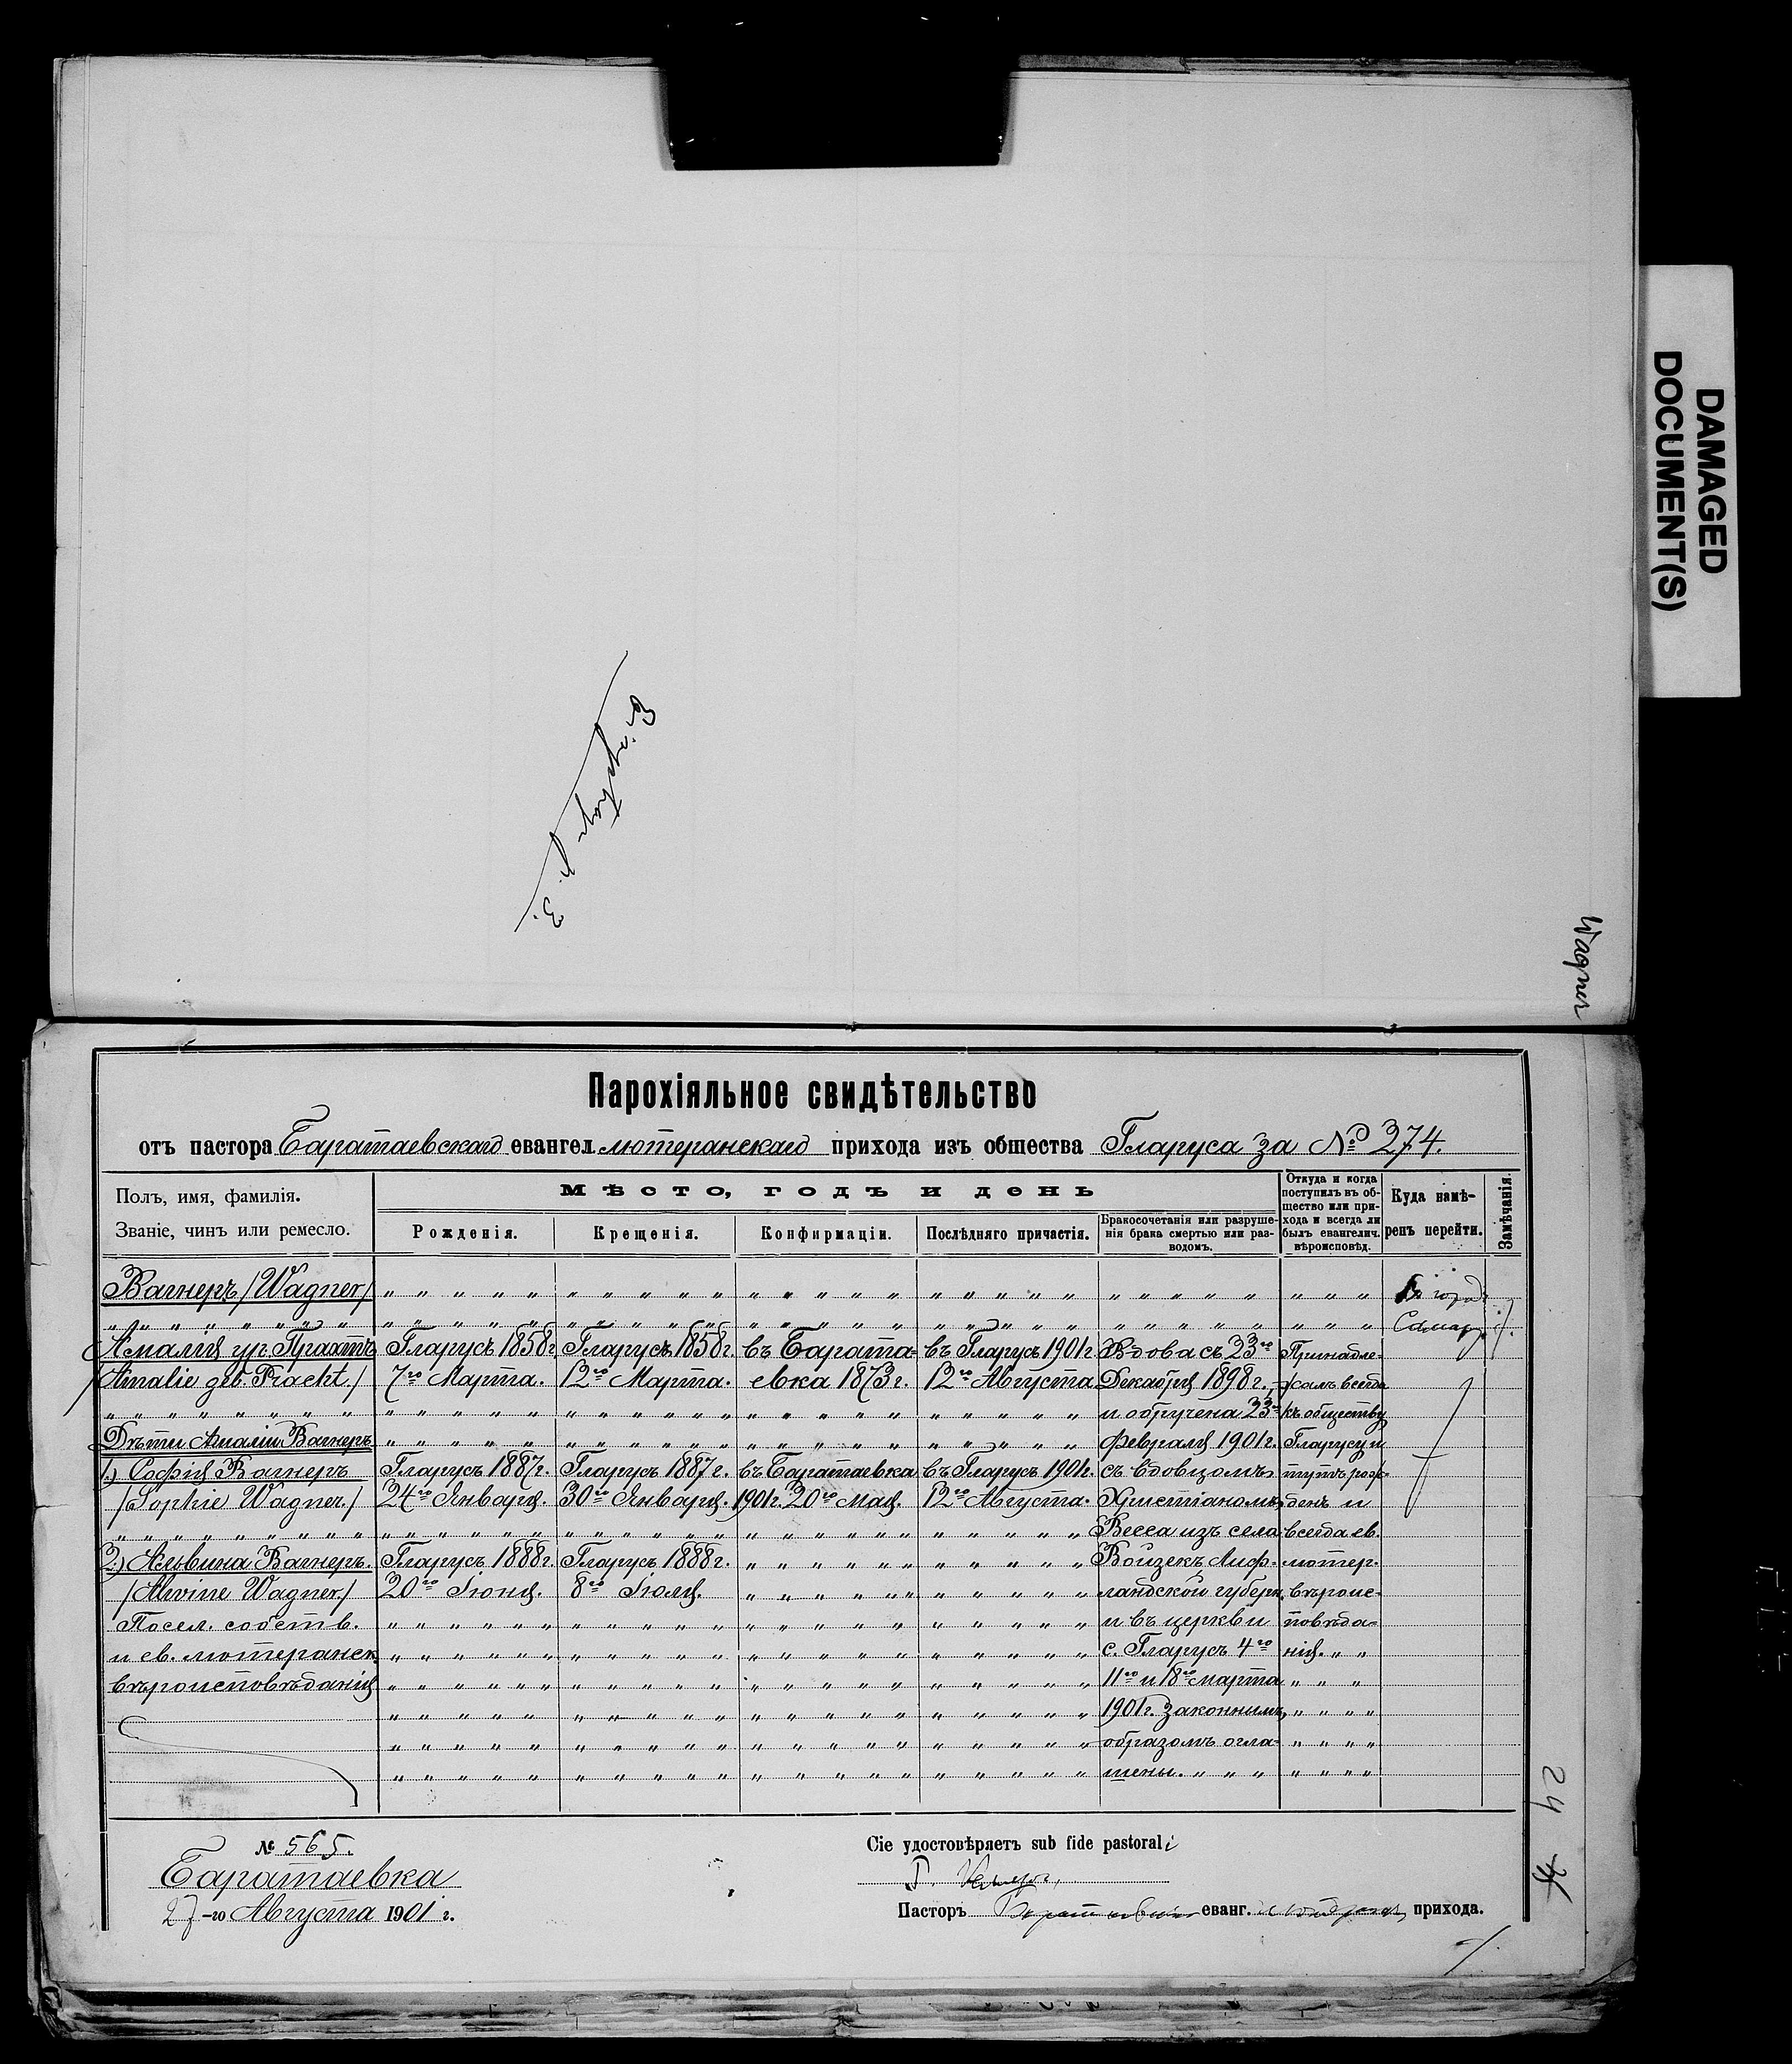 DAMAGED
DOCUMENT(S)
Wagner
Парохіяльное свидѣтельство
отъ пастора Баратаевскаго евангел. лютеранскаго прихода изъ общества Гларуса за № 274.
Полъ, имя, фамилія.
Званіе, чинъ или ремесло.
Мѣсто, годъ и день
Рожденія.
Крещенія.
Конфирмаціи.
Послѣдняго причастія.
Бракосочетанія или разруше-
нія брака смертью или раз-
водомъ.
Откуда и когда
поступилъ въ об-
щество или при-
хода и всегда ли
былъ евангелич.
вѣроисповѣд.
Куда намѣ-
ренъ перейти.
Замѣчанія.
Вагнеръ /Wagner/
Амалія ур. Прахтъ
/Amalie geb. Pracht./
Дѣти Амаліи Вагнеръ
1.) Софія Вагнеръ
/Sophie Wagner./
2.) Альвина Вагнеръ.
/Alwine Wagner./
Посел. собств.
и ев. лютеранск.
вѣроисповѣданія
Гларусъ 1858 г.
7го Марта.
Гларусъ 1887 г.
24го Января.
Гларусъ 1888 г.
20го Іюня.
Гларусъ 1858 г.
12го Марта.
Гларусъ 1887 г.
30го Января.
Гларусъ 1888 г.
8го Іюля.
въ Барата-
евка 1873 г.
въ Баратаевка
1901 г. 20го Мая.
въ Гларусъ 1901 г.
12го Августа
въ Гларусъ 1901 г.
12го Августа.
Вдова съ 23го
Декабря 1898 г.,
и обручена 23го
февраля 1901 г.
съ вдовцомъ
Христіаномъ
Весса изъ села
Войзекъ Лиф-
ляндской губерн.
и въ церкви
с. Гларусъ 4го
11го и 18го марта
1901 г. законнымъ
образомъ огла-
шены.
Принадле-
жалъ всегда
къ обществу
Гларусу и
тутъ рож-
денъ и
всегда ев.
лютер.
вѣроис-
повѣда-
нія.
городъ
№ 565.
Баратаевка
27-го Августа 1901 г.
Сіе удостовѣряетъ sub fide pastorali
Пасторъ еванг. прихода.
24